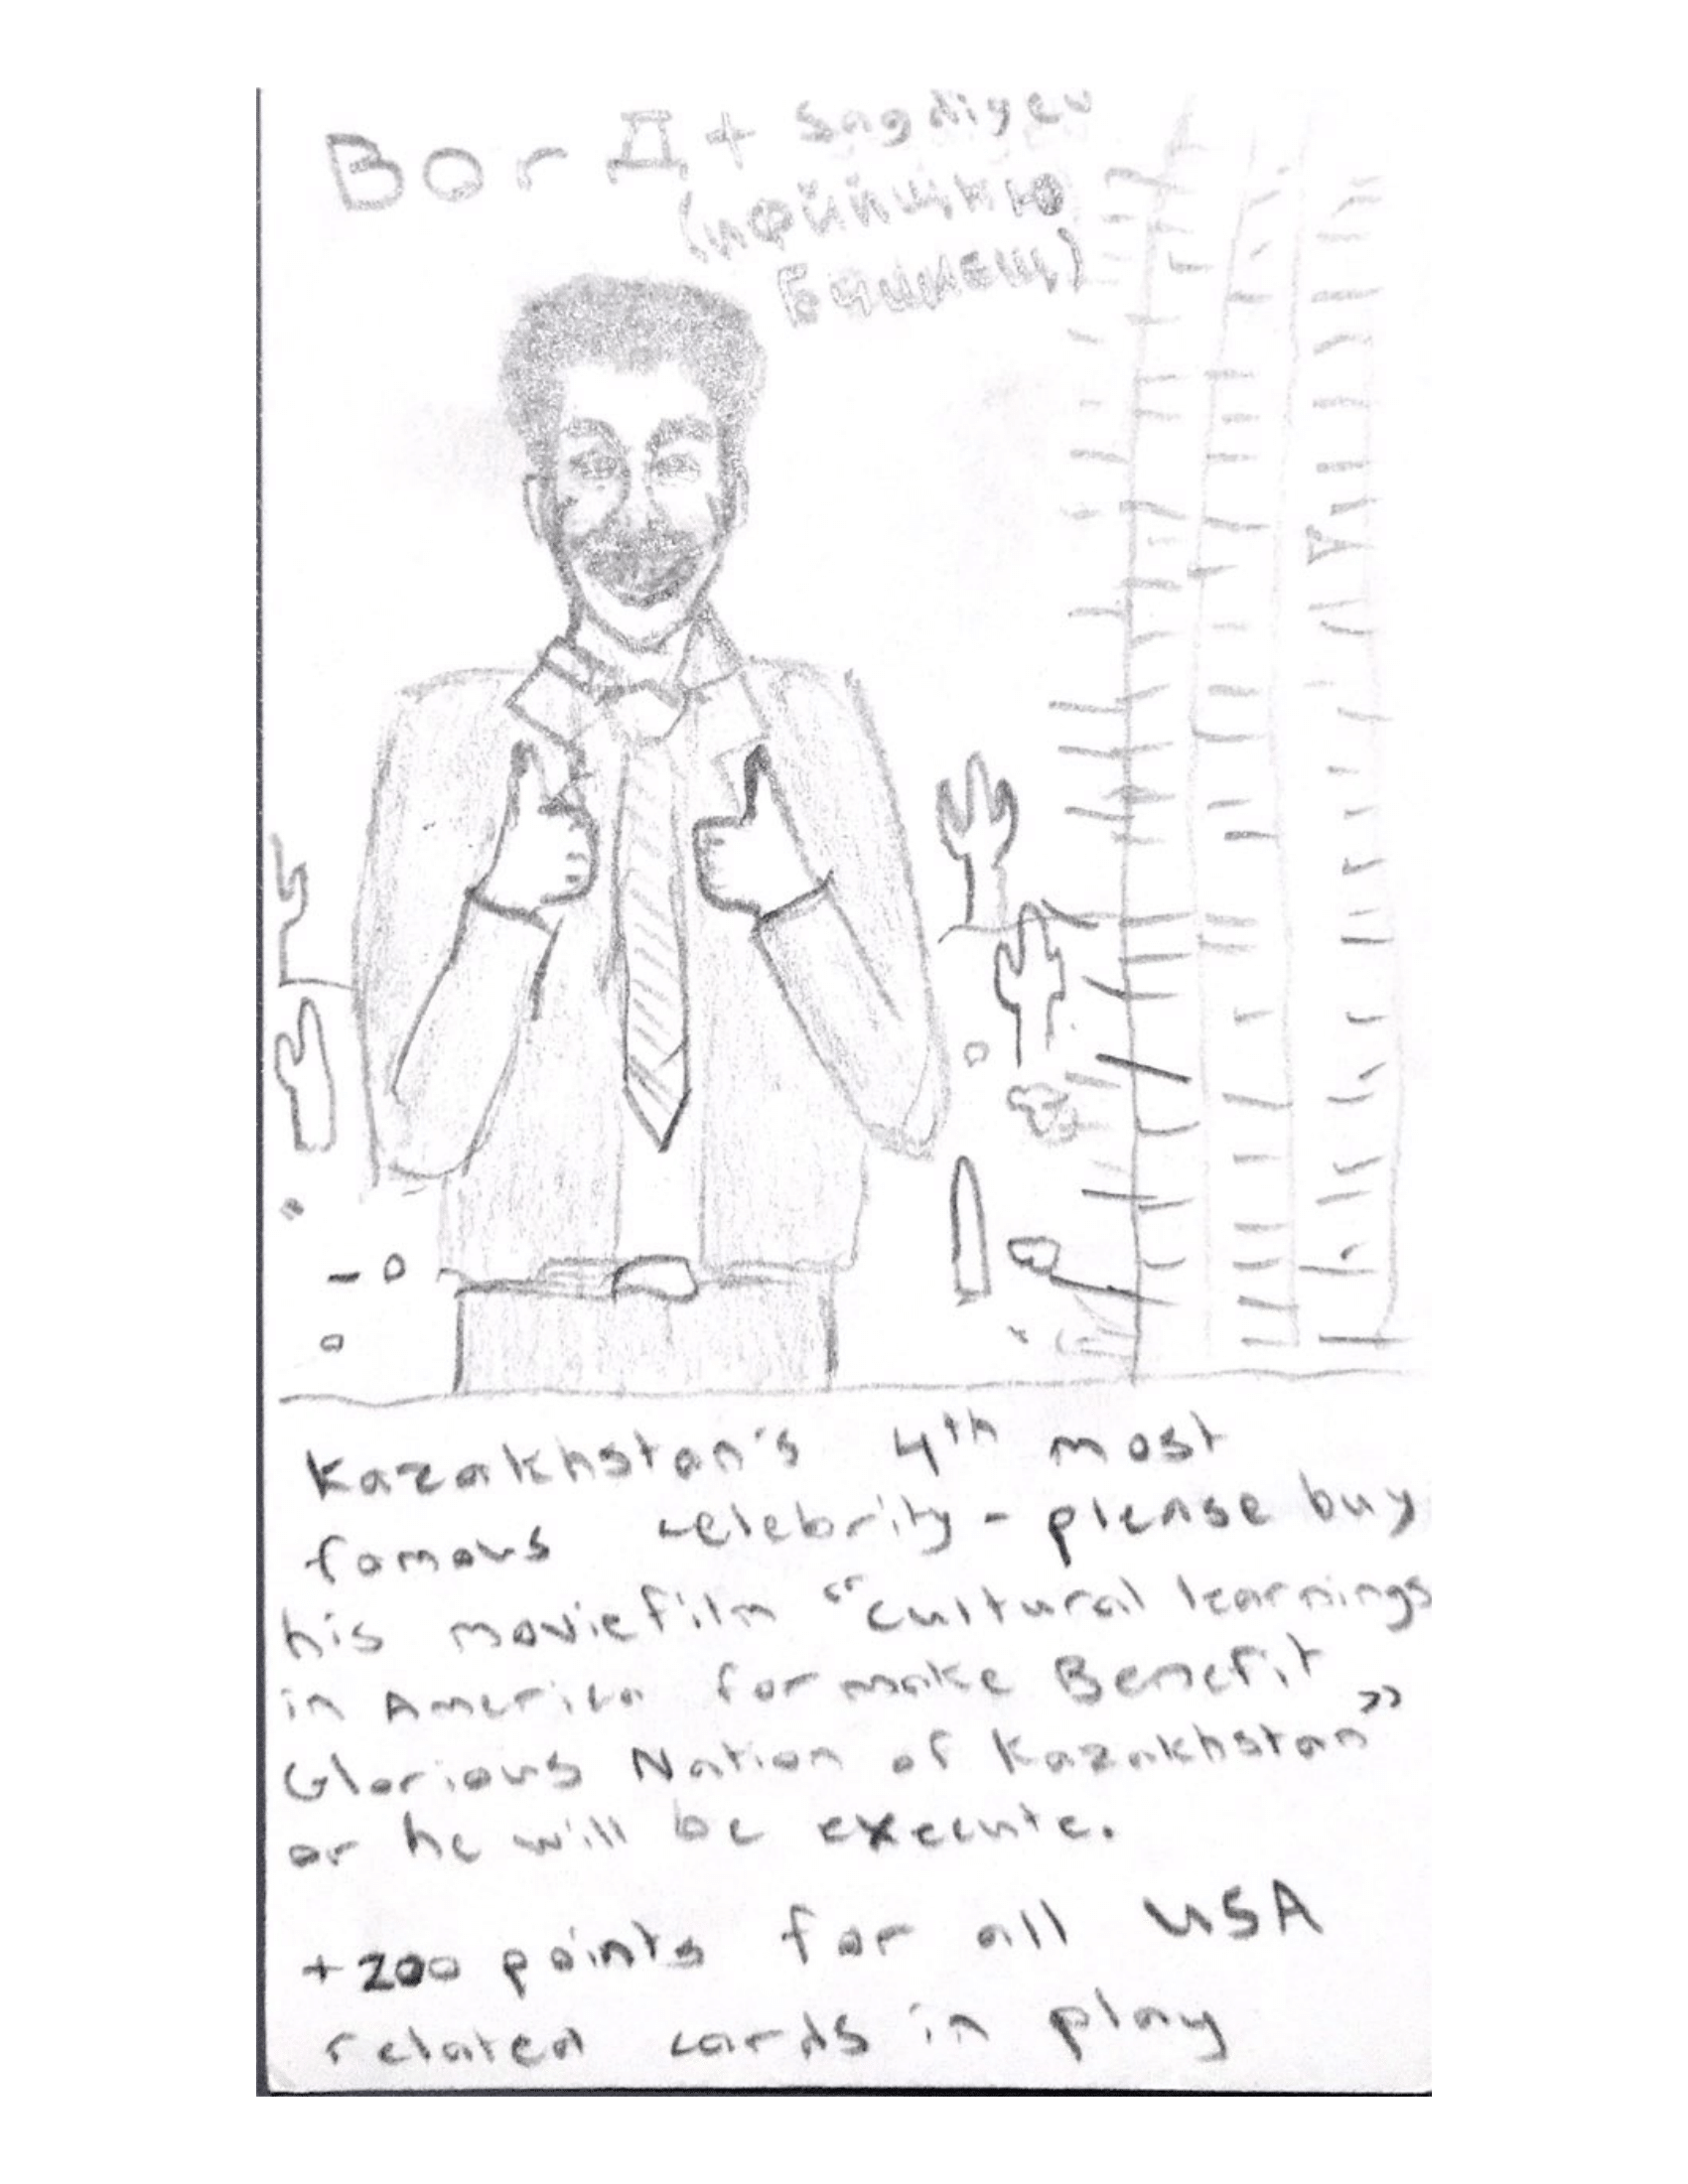 BorД+ Sagdiyev
Kazakhstan's 4th most
famous celebrity - please buy
his moviefilm "cultural learnings
in America for make Benefit
Glorious Nation of Kazakhstan"
or he will be execute.
+200 points for all USA
related cards in play